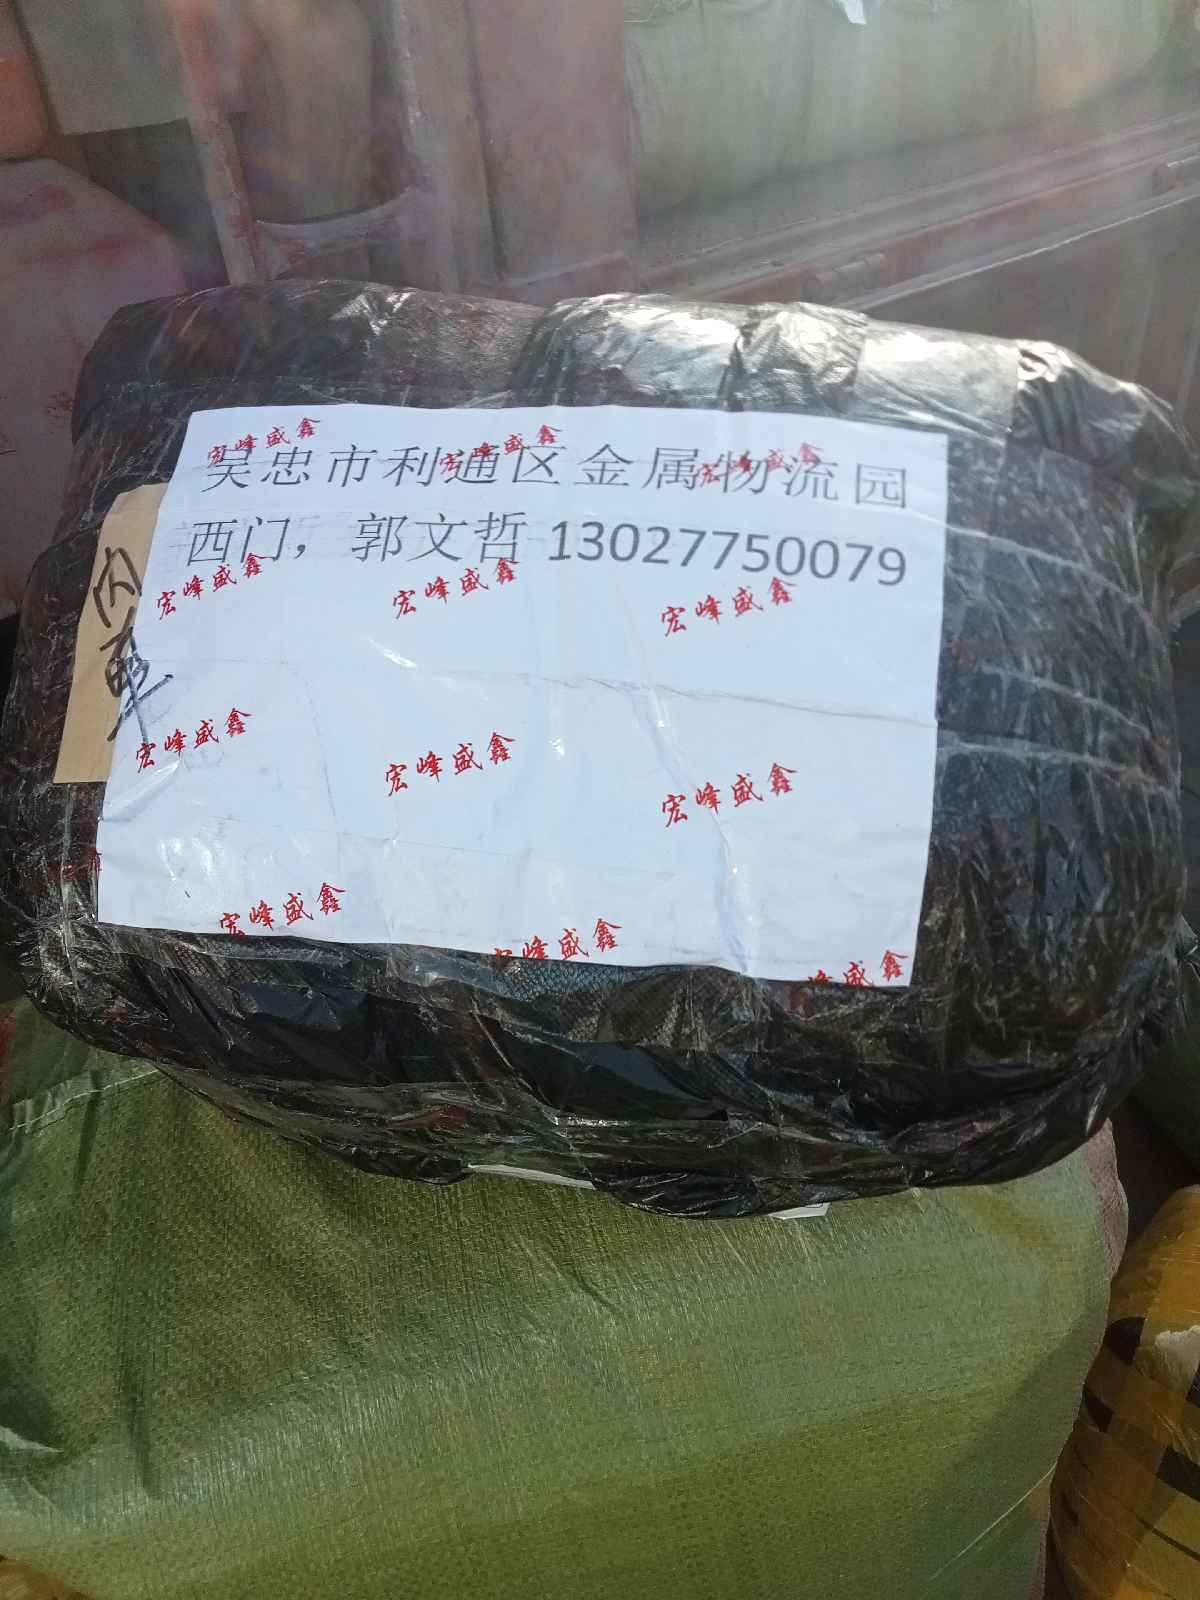 吴忠市利通区金属物流园
西门，郭文哲 13027750079
宏峰盛鑫
宏峰盛鑫
宏峰盛鑫
宏峰盛鑫
宏峰盛鑫
宏峰盛鑫
宏峰盛鑫
宏峰盛鑫
宏峰盛鑫
宏峰盛鑫
宏峰盛鑫
峰盛鑫